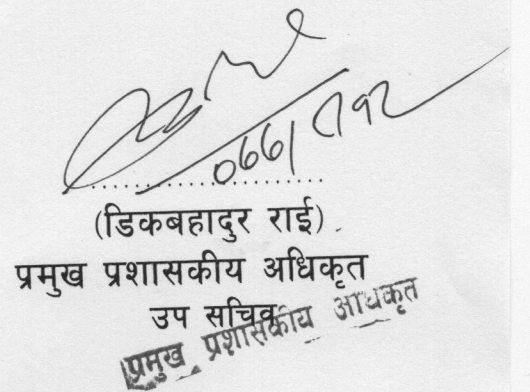 ०६६/
(डिकबहादुर राई)
प्रमुख प्रशासकीय अधिकृत
उप सचिव
प्रमुख प्रशासकीय अधिकृत